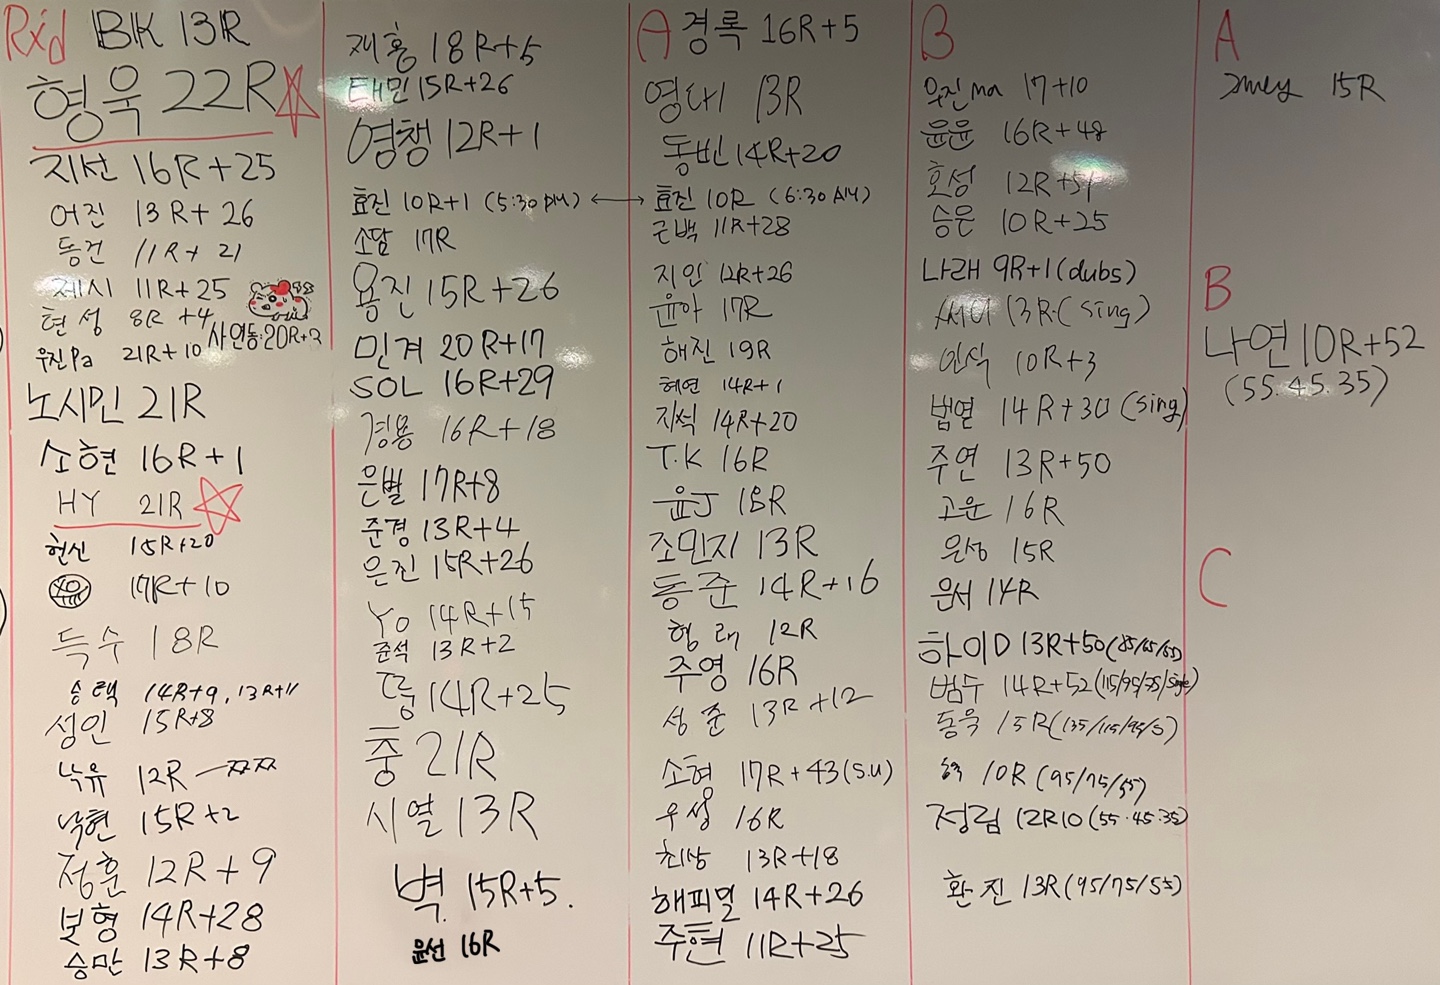 Rxd
BK 13R
형욱 22R
지선 16R+25
어진 13R+26
동건 11R+21
제시 11R+25
현성 8R+4
사연동:20R+3
우진Pa 21R+10
노시민 21R
소현 16R+1
HY 21R
현신 15R+20
17R+10
득수 18R
승택 14R+9, 13R+11
성인 15R+8
낙유 12R
낙현 15R+2
정훈 12R+9
보형 14R+28
승만 13R+8
재홍 18R+5
태민 15R+26
영챙 12R+1
효진 10R+1 (5:30 PM)
소담 17R
용진 15R+26
민겨 20R+17
SOL 16R+29
경용 16R+18
은별 17R+8
준경 13R+4
은진 15R+26
Yo 14R+15
준석 13R+2
14R+25
중 21R
시열 13R
벽 15R+5.
윤선 16R
A
경록 16R+5
영대 13R
동빈 14R+20
효진 10R (6:30 AM)
근백 11R+28
지인 12R+26
윤아 17R
해진 19R
혜연 14R+1
지석 14R+20
T.K 16R
윤J 18R
조민지 13R
동준 14R+16
형래 12R
주영 16R
성준 13R+12
소형 17R+43(S.U)
우성 16R
최상 13R+18
해피밀 14R+26
주현 11R+25
B
우진ma 17+10
윤윤 16R+48
호성 12R+51
승은 10R+25
나래 9R+1(dubs)
써니 13R(sing)
인식 10R+3
범열 14R+30(sing)
주연 13R+50
고운 16R
은성 15R
운서 14R
하이D 13R+50(85/65/65)
범두 14R+52(115/95/75/single)
동욱 15R(135/115/95/S)
10R(95/75/55)
정림 12R10(55.45.35)
환진 13R(95/75/55)
A
15R
B
나연 10R+52
(55.45.35)
C